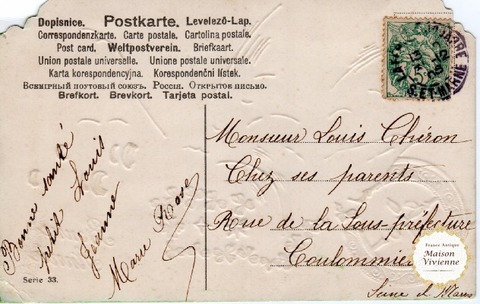 Dopisnice. Postkarte. Levelező-Lap.
Correspondenzkarte. Carte postale. Cartolina postale.
Post card. Weltpostverein. Briefkaart.
Union postale universelle. Unione postale universale.
Karta korespondencyjna. Korespondenční lístek.
Всемірный почтовый союзъ. Россія. Открытое письмо.
Brefkort. Brevkort. Tarjeta postal.
Bonne santé
petit Louis
Jeanne
Marie Rose
Serie 33.
Monsieur Louis Chéron
Chez ses parents
Rue de la Sous-préfecture
Coulommiers
Seine et Marne
France Antique
Maison
Vivienne